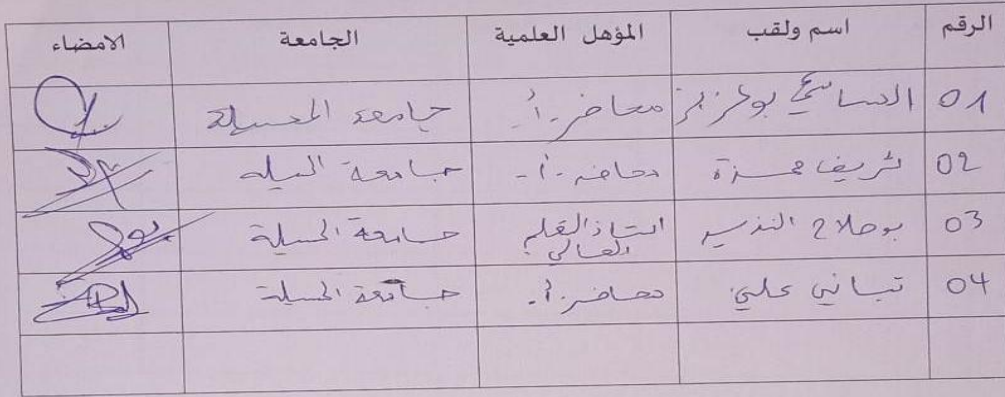 الرقم اسم ولقب المؤهل العلمية الجامعة الامضاء
01 الساسي بوعزيز محاضر -أ- جامعة المسيلة
02 شريف حمزة محاضر -أ- جامعة المسيلة
03 بوصلاح النذير استاذ التعليم العالي جامعة المسيلة
04 تباني علي محاضر -أ- جامعة المسيلة